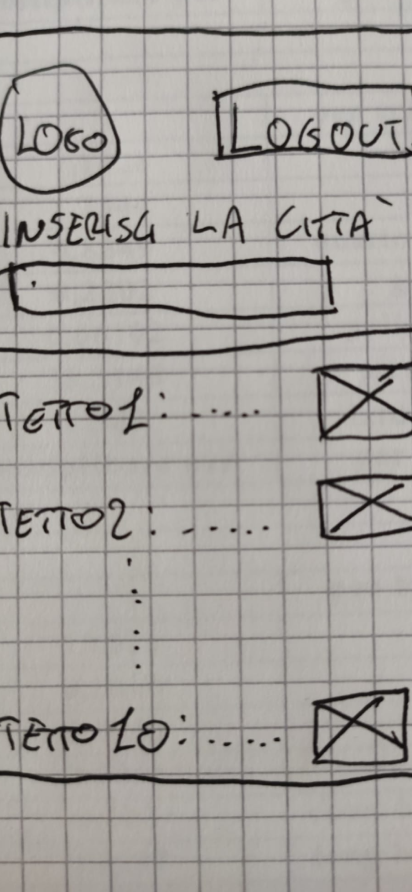 LOGO LOGOUT
INSERISCI LA CITTÀ
TETTO1: .....
TETTO2: .....
TETTO 10: .....